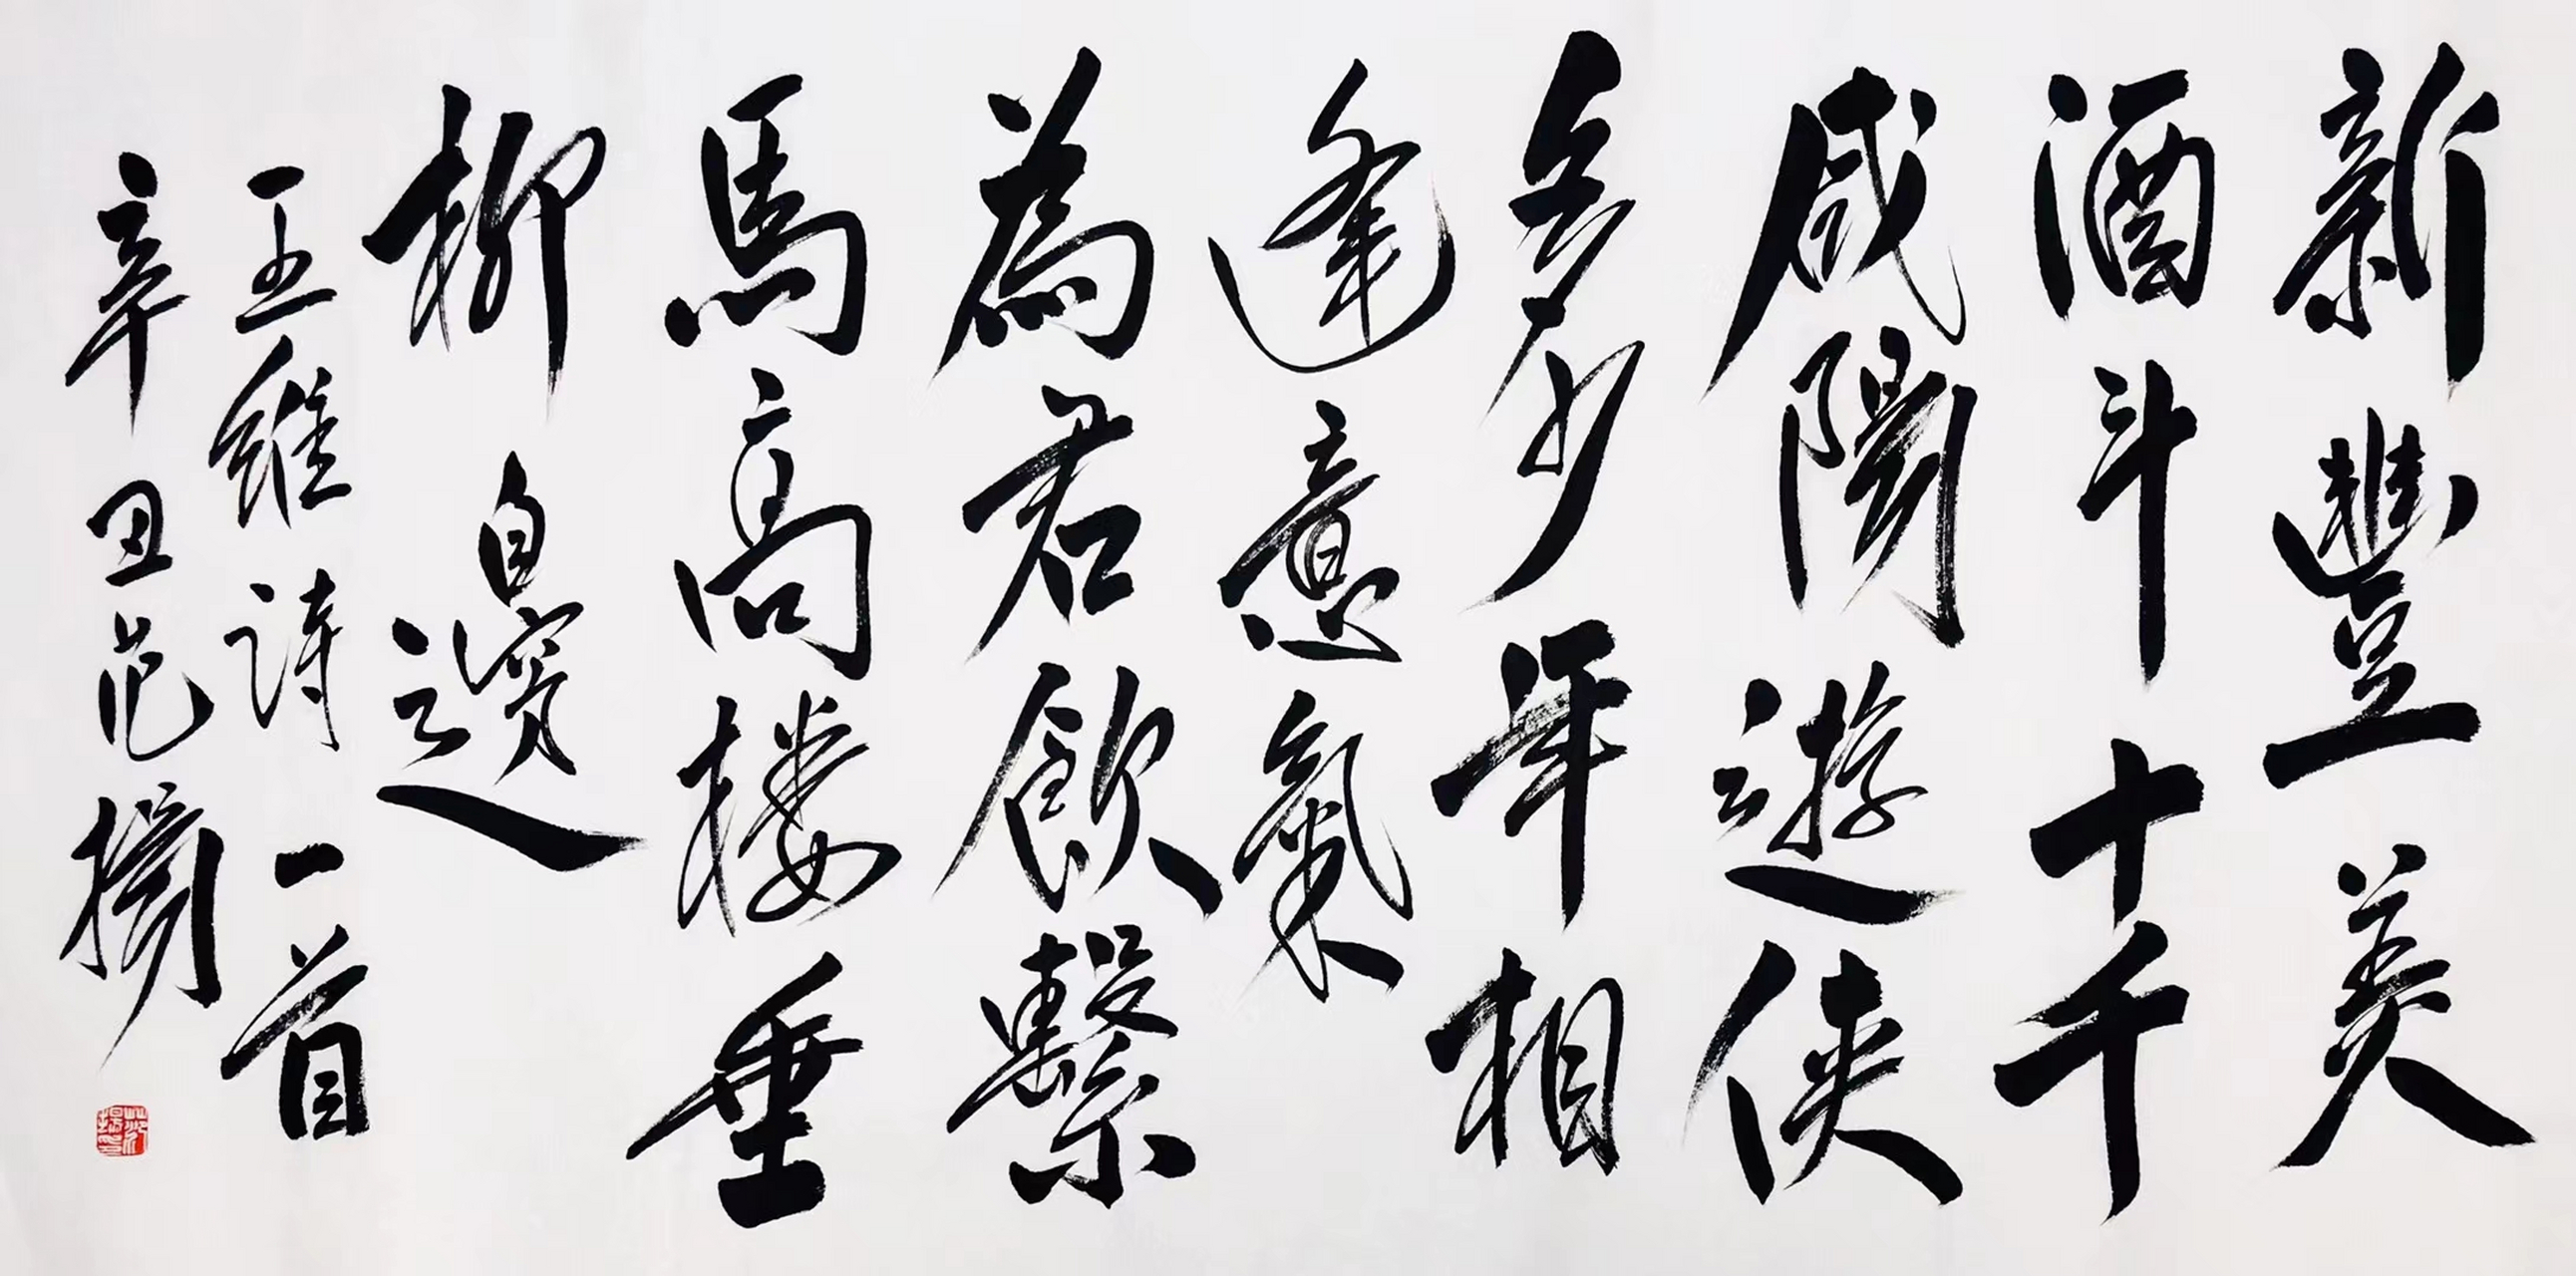 新豐美
酒斗十千
咸陽遊俠
多少年相
逢意氣
為君飲繫
馬高樓垂
柳邊
王維詩一首
辛丑范揚
范揚